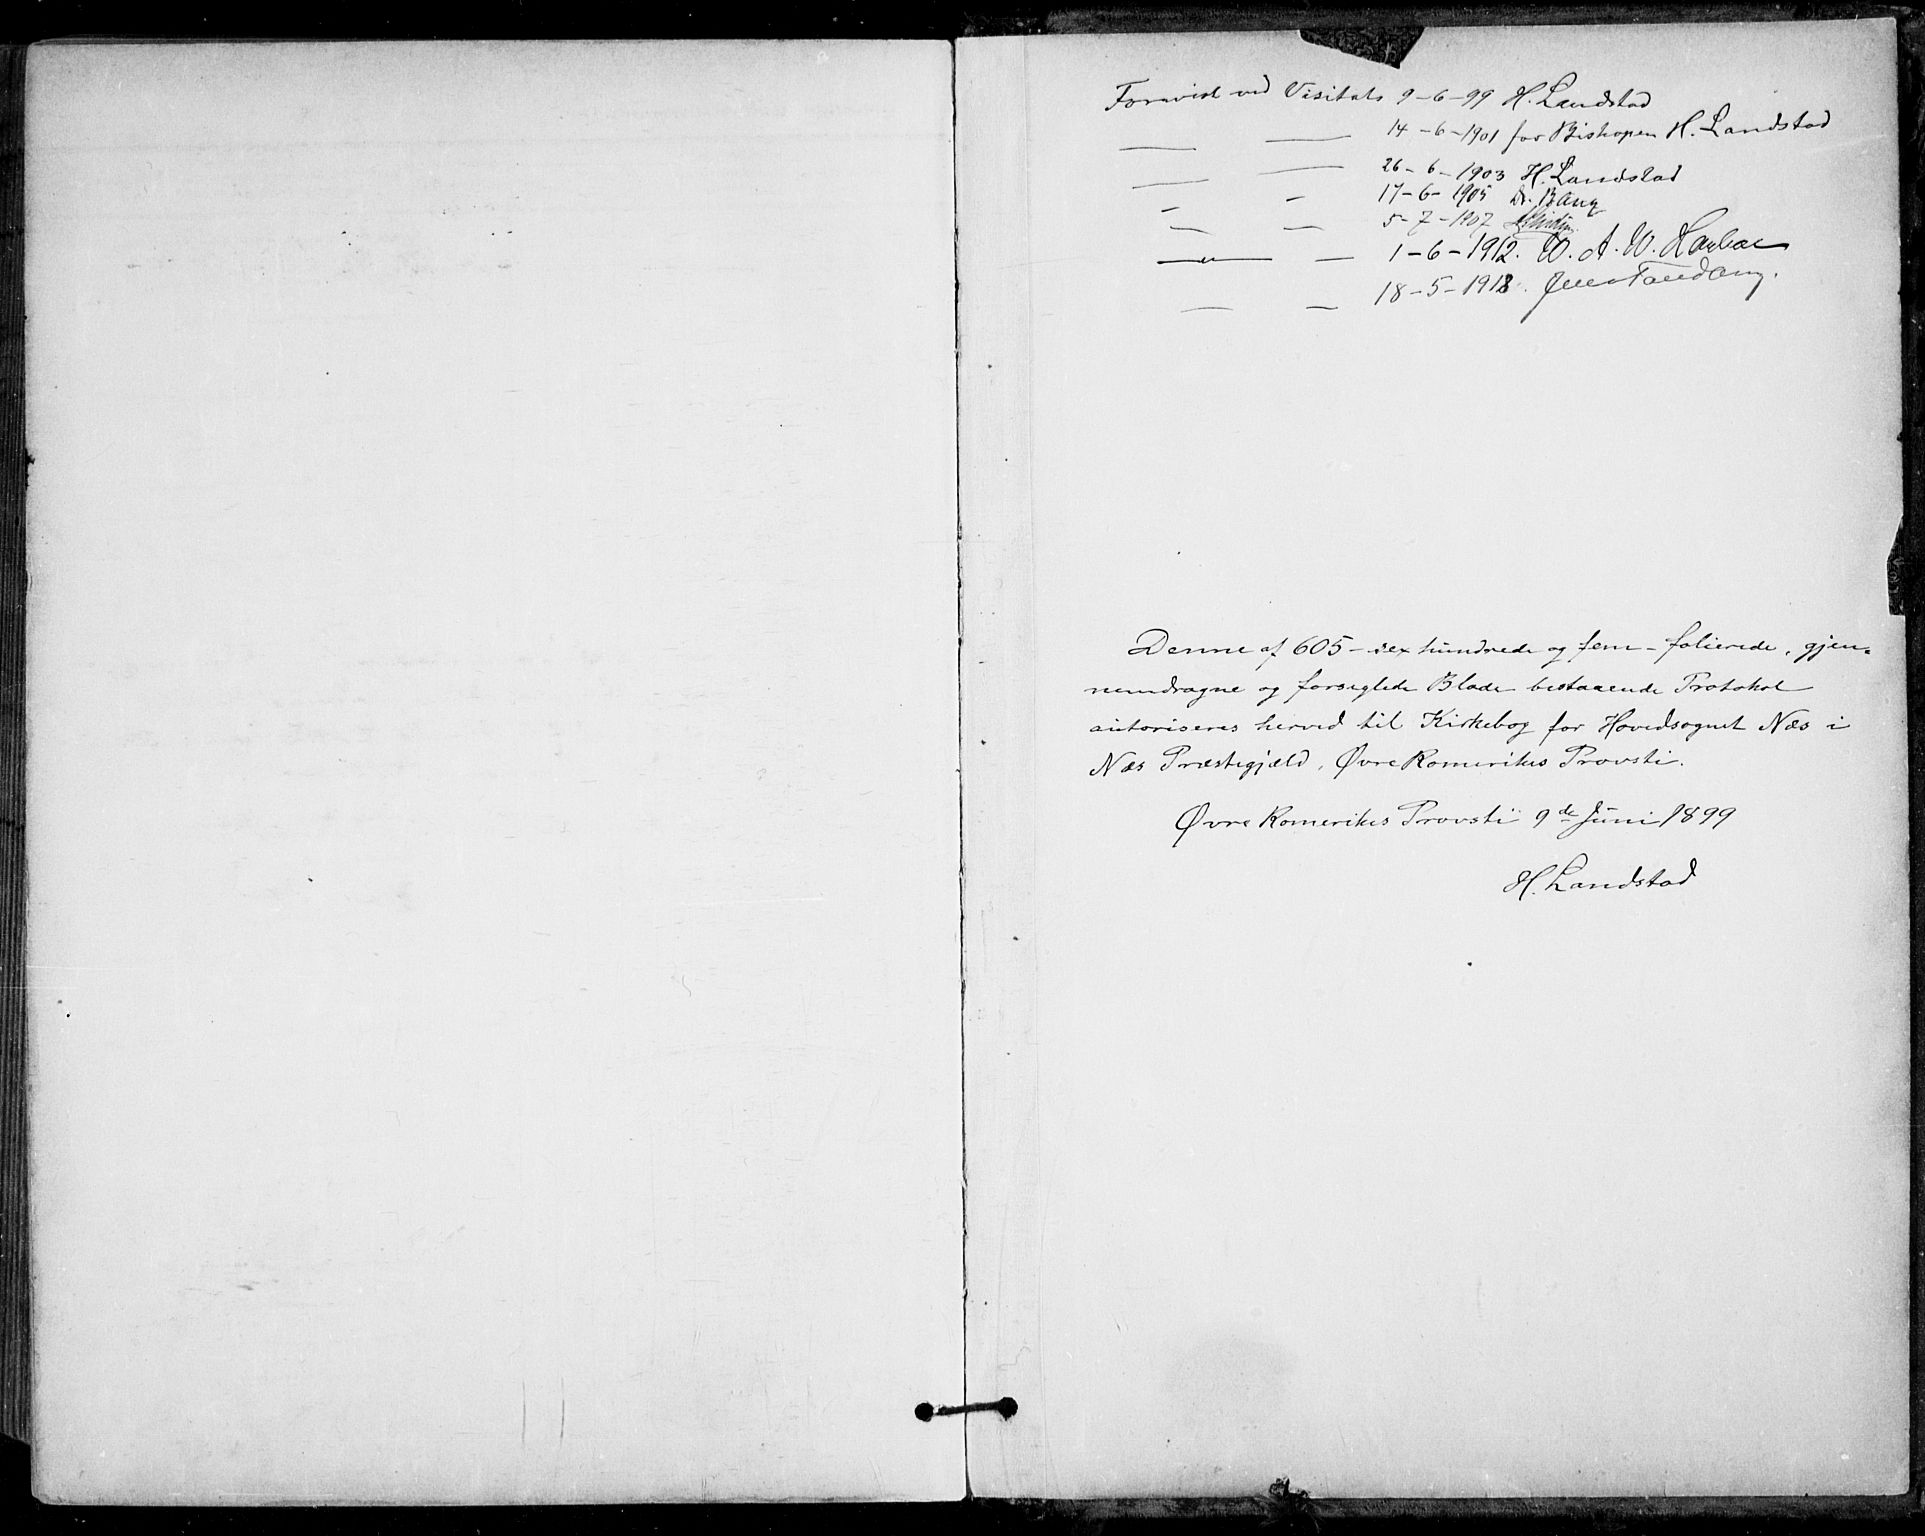 Forevist ved Visitats 9-6-99 H. Landstad
— — 14-6-1901 for Biskopen H. Landstad
— — 26-6-1903 H. Landstad
— — 17-6-1905 Dr. Bang
— — 5-7-1907
— " — — 1-6-1912. W. A. W.
— — 18-5-1918. Jens Tandberg.
Denne af 605 - sex hundrede og fem - folierede, gjen-
nemdragne og forseglede Blade bestaaende Protokol
autoriseres herved til Kirkebog for Hovedsognet Næs i
Næs Præstegjæld, Øvre Romerikes Provsti.
Øvre Romerikes Provsti 9de Juni 1899
H. Landstad